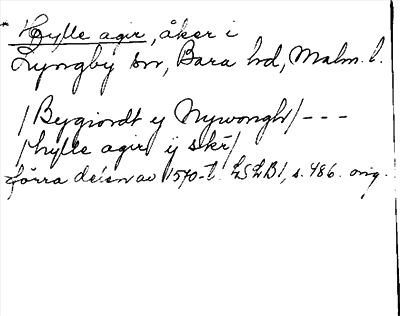 * Hylle agir, åker i
Lyngby sn, Bara hd, Malm. l.
/Bygiordt y Nywongh/ - - -
/hylle agir ÿ skr̄/
Förra delen av 1570-t. LSLB1, s. 486. orig.